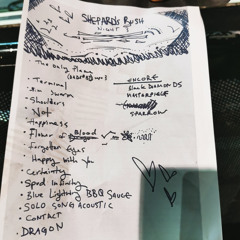 SHEPARDS BUSH
NIGHT
The Only Place
Terminal
Shoulders
Not
Happiness
Flower of Blood
Forgotten Eyes
Happy with You
Certainty
Spud Infinity
Blue Lightning BBQ SAUCE
SOLO SONG ACOUSTIC
CONTACT
DRAGON
ENCORE
Black DIAMONDS
MASTERPIECE
SPARROW